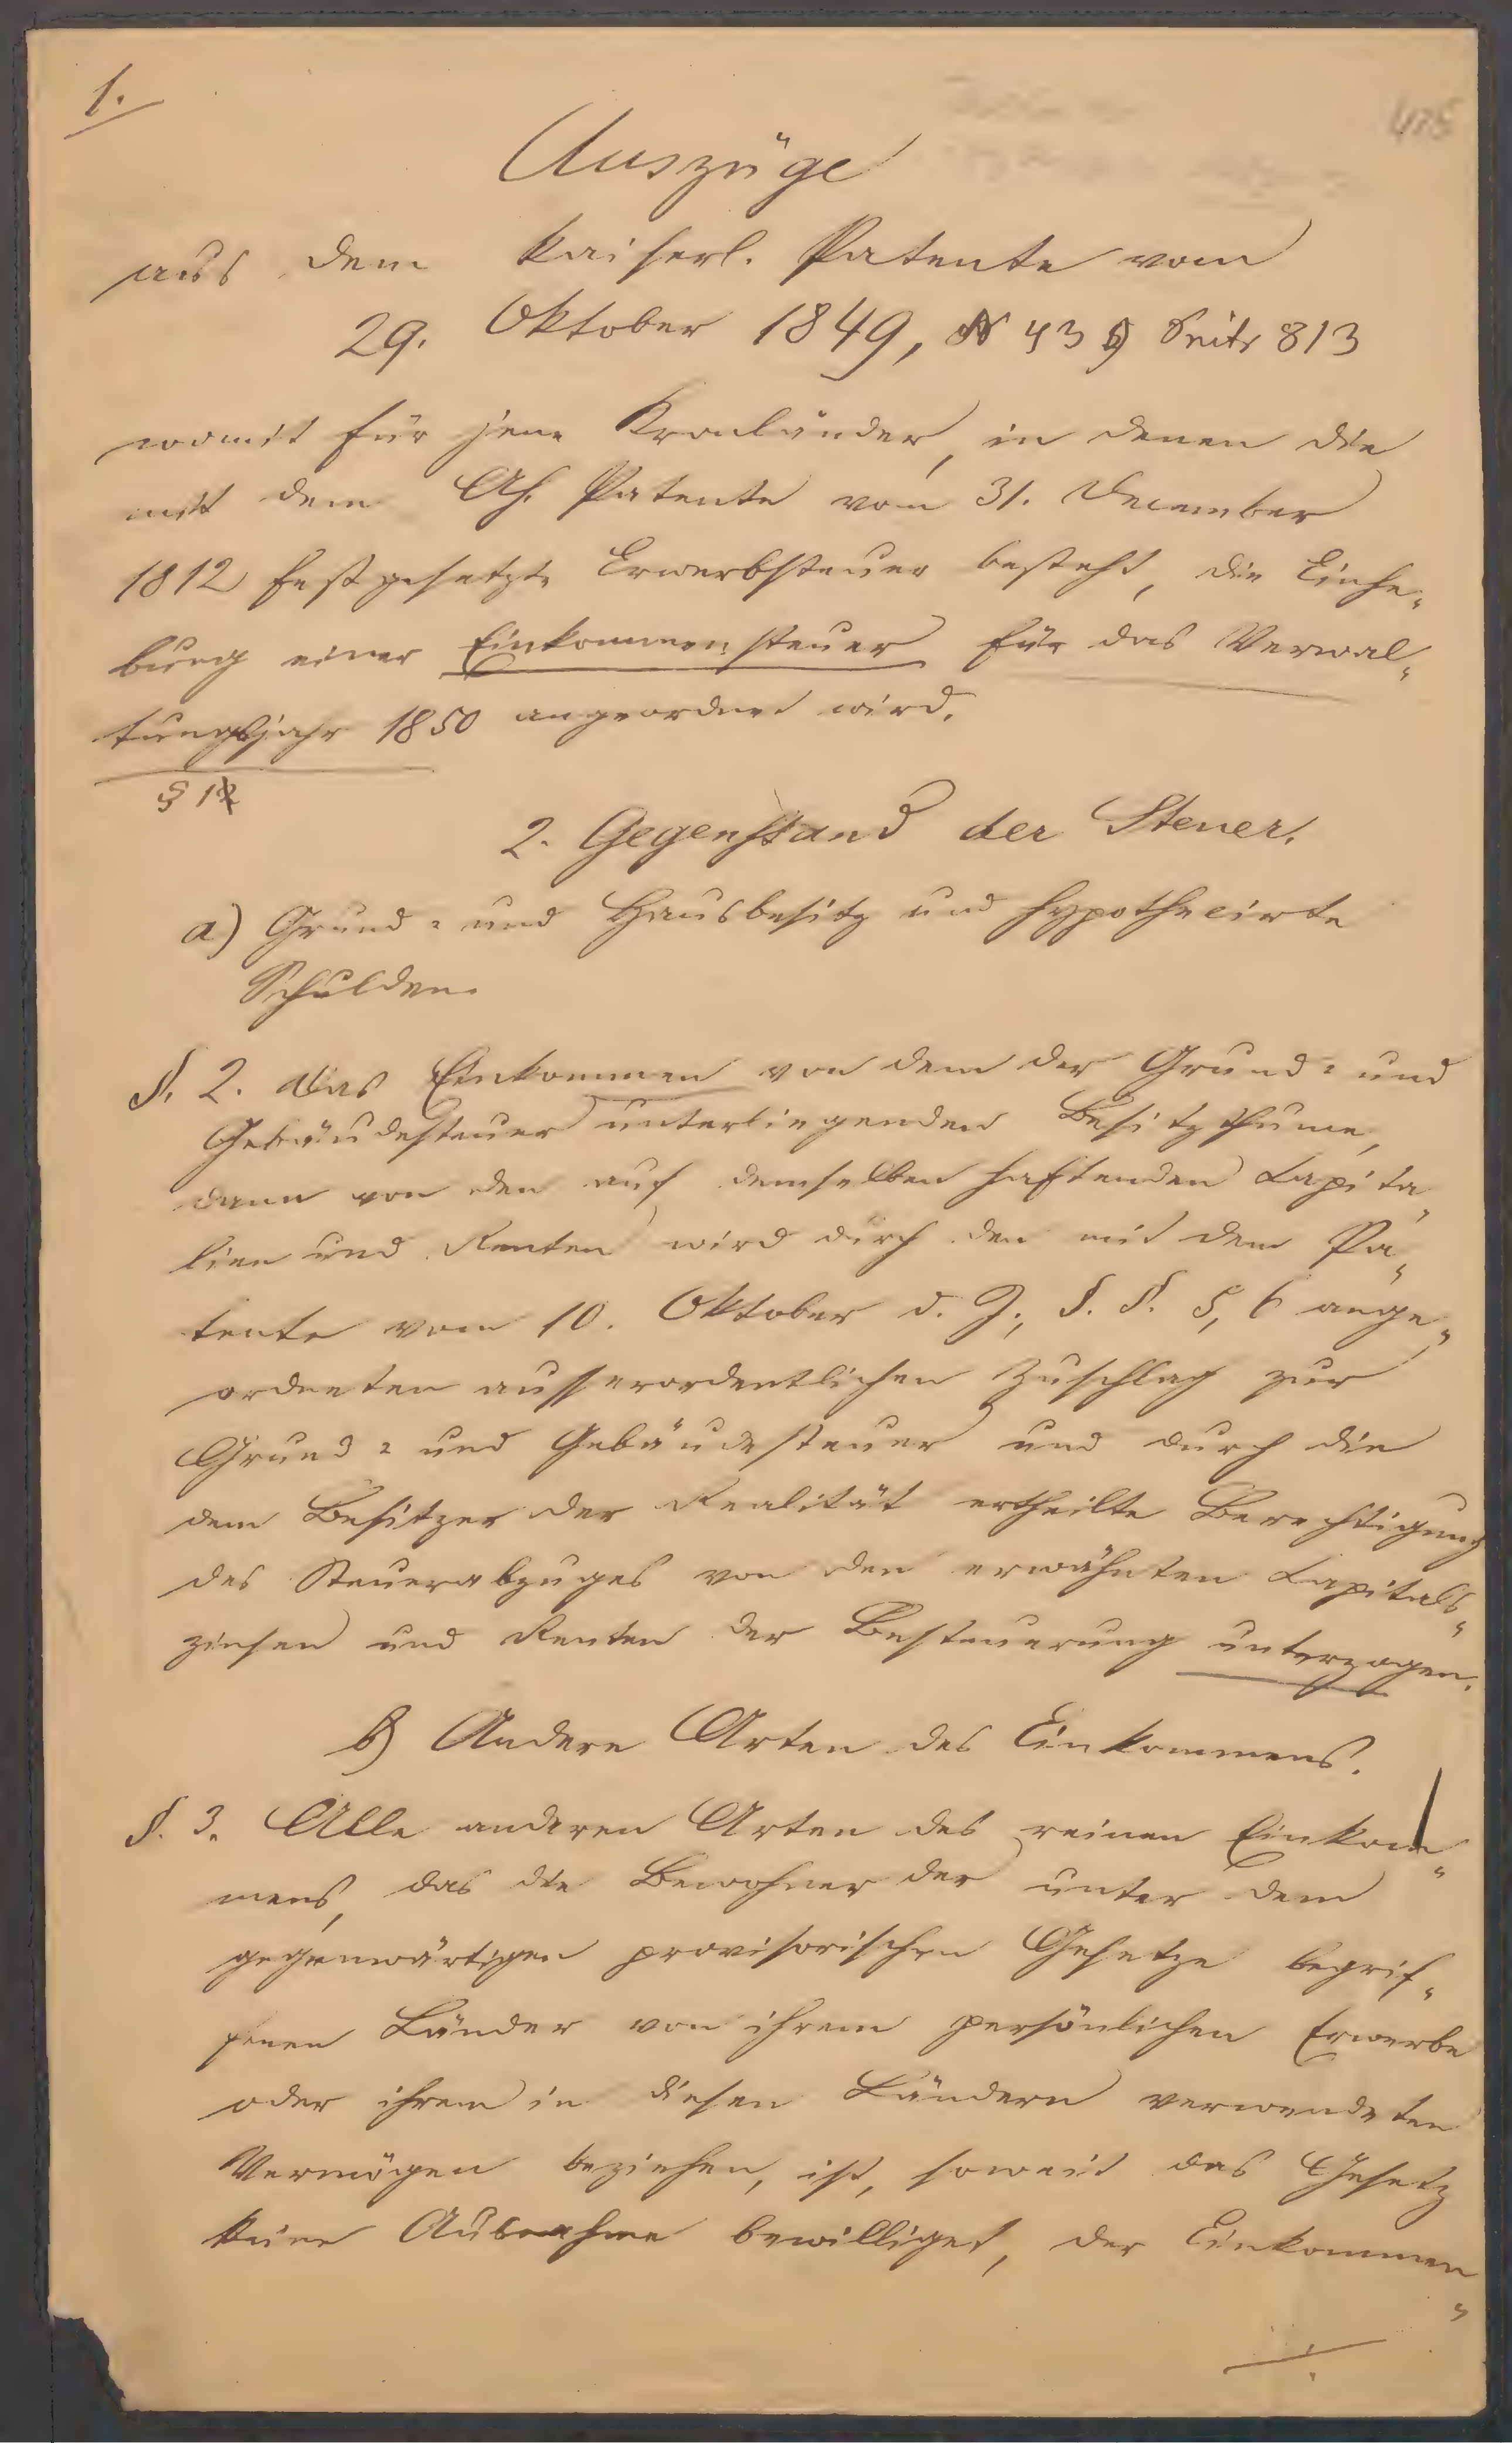 1.
Auszüge
aus dem kaiserl. Patente vom
29. Oktober 1849, N 439 Seite 813
womit für jene Kronländer, in denen die
mit dem Ah. Patente vom 31. December
1812 festgesetzte Erwerbsteuer besteht, die Einhe„
bung einer Einkommensteuer für das Verwal„
tungsjahr 1850 angeordnet wird.
§ 1
2. Gegenstand der Steuer.
a) Grund= und Hausbesitz und hypothecirte
Schulden.
§. 2. Das Einkommen von dem der Grund= und
Gebäudesteuer unterliegenden Besitzthume,
dann von den auf demselben haftenden Kapita„
lien und Renten wird durch den mit dem Pa„
tente vom 10. Oktober d. J., §. §. 5, 6 ange„
ordneten ausserordentlichen Zuschlag zur
Grund= und Gebäudesteuer und durch die
dem Besitzer der Realität ertheilte Berechtigung
des Steuerabzuges von den erwähnten Kapitals„
zinsen und Renten der Besteuerung unterzogen.
b) Andere Arten des Einkommens.
§. 3. Alle anderen Arten des reinen Einkom„
mens, das die Bewohner der unter dem
gegenwärtigen provisorischen Gesetze begrif„
fenen Länder von ihrem persönlichen Erwerbe
oder ihrem in diesen Ländern verwendeten
Vermögen beziehen, ist, soweit das Gesetz
keine Ausnahme bewilliget, der Einkommen„
./.